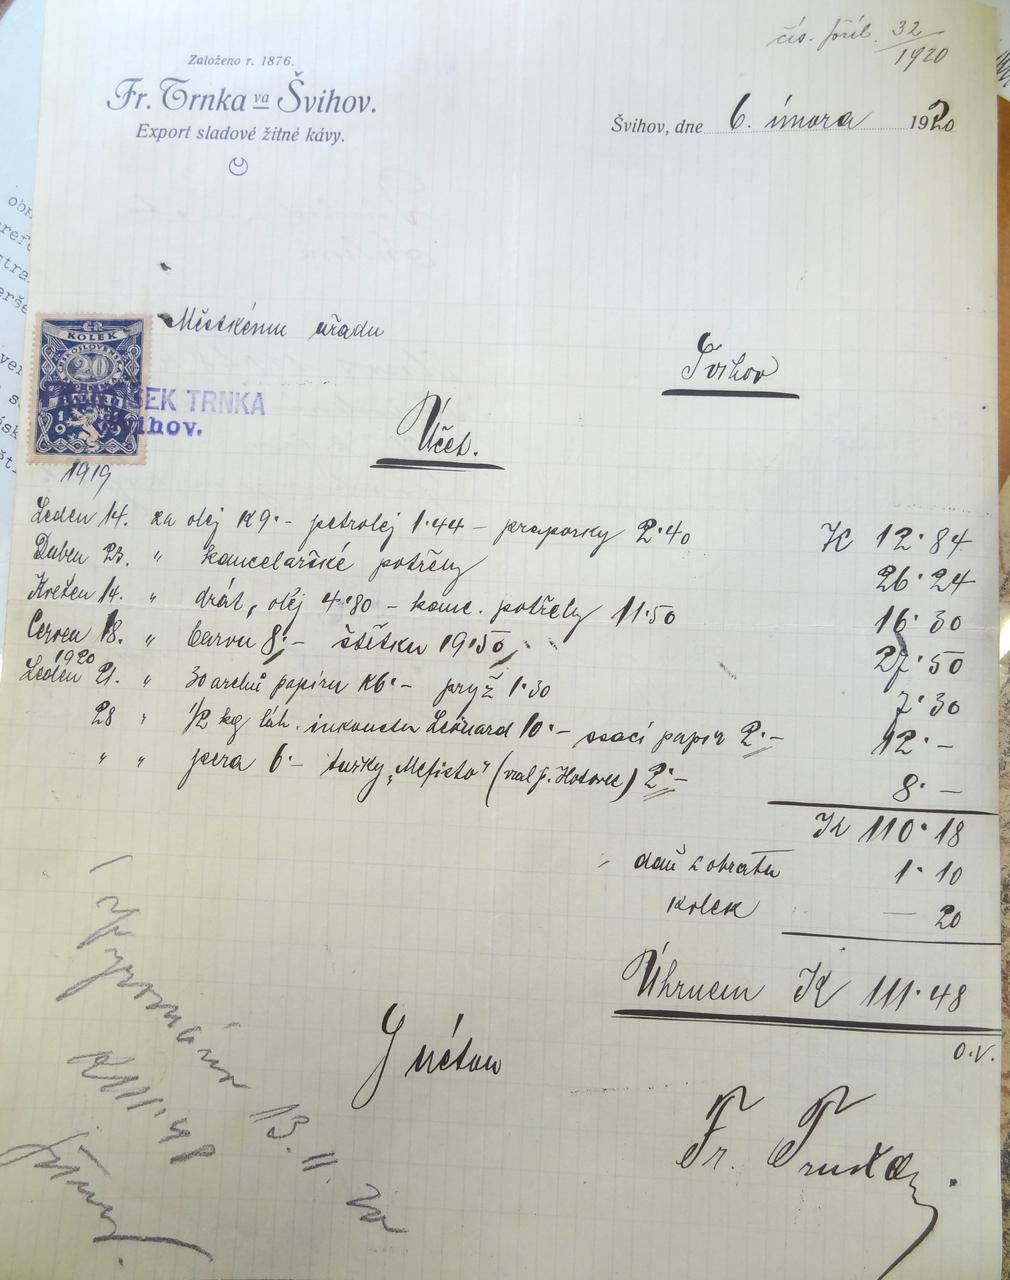 čís. příl. 32/1920
Založeno r. 1876.
Fr. Trnka va Švihov.
Export sladové žitné kávy.
Švihov, dne 6. února 1920
Městskému úřadu
Švihov
KOLEK
20
FRANTIŠEK TRNKA
Švihov.
Účet.
1919
Leden 14. za olej K 9·- petrolej 1·44 - praporky 2·40 K 12·84
Duben 23. " kancelářské potřeby 26·24
Květen 14. " drát, olej 4·80 - kanc. potřeby 11·50 16·30
Červen 18. " barvu 8·- štětku 19·50 27·50
1920
Leden 21. " 30 archů papíru K 6·- pryž 1·30 7·30
28 " 1/2 kg láh. inkoustu Leonard 10·- ssací papír 2·- 12·-
" " pera 6·- tužky „Mefisto" (vzal p. ) 2·- 8·-
K 110·18
daň z obratu 1·10
kolek - 20
Úhrnem K 111·48
o. v.
S úctou
Fr. Trnka.
Vyrovnáno
K 111·48
13. II. 20